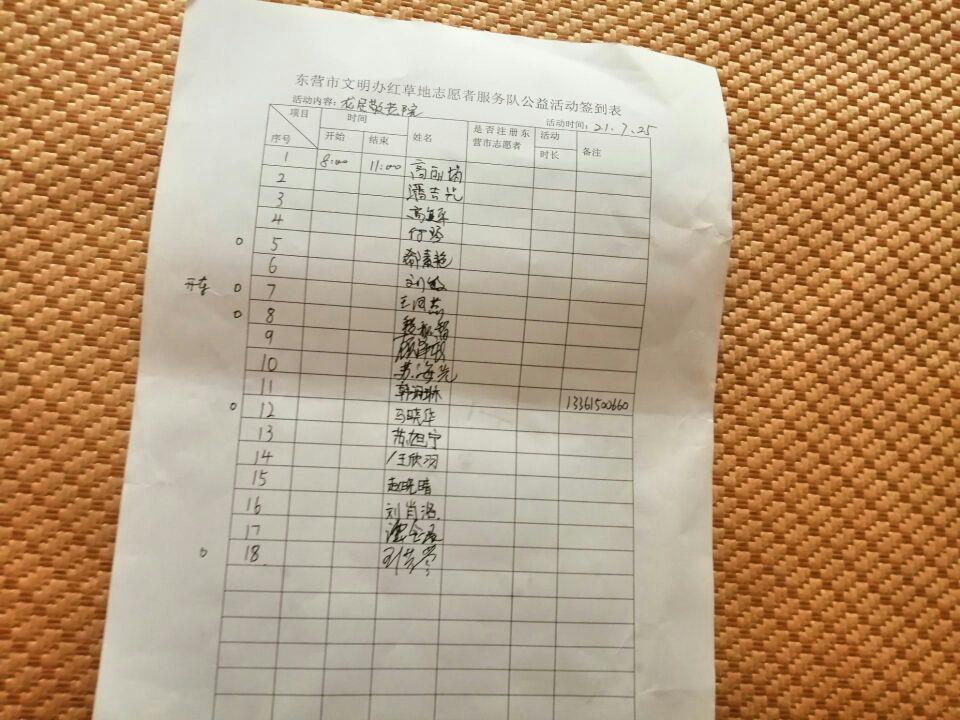 东营市文明办红草地志愿者服务队公益活动签到表
活动内容：龙居敬老院 活动时间：21.7.25
项目 时间 姓名 是否注册东营市志愿者 活动时长 备注
序号 开始 结束
1 8:00 11:00 高丽娟
2 潘吉芹
3
4 付玲
5 郗素艳
6 刘敏
开车 7 王风燕
8
9
10 苏海光
11 韩润琳 13361500660
12 马晓华
13 苏旭宁
14 王欣羽
15 赵晓晴
16 刘肖潞
17
18